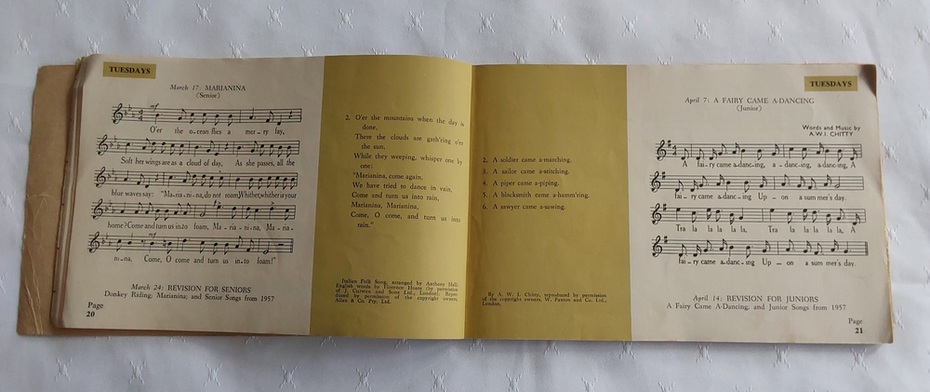 TUESDAYS
March 17: MARIANINA
(Senior)
O'er the o-cean flies a mer-ry fay,
Soft her wings are as a cloud of day, As she passes, all the
blue waves say: "Ma-ria-ni-na, do not roam, Whither, whither is your
home? Come and turn us in-to foam, Ma-ria-ni-na, Ma-ria-
ni-na, Come, O come and turn us in-to foam!"
March 24: REVISION FOR SENIORS
Donkey Riding; Marianina; and Senior Songs from 1957
Page
20
2. O'er the mountains when the day is
done,
There the clouds are gath'ring o'er
the sun.
While they weeping, whisper one by
one:
"Marianina, come again,
We have tried to dance in vain,
Come and turn us into rain,
Marianina, Marianina,
Come, O come, and turn us into
rain."
Italian Folk Song, arranged by Anthony Hall.
English words by Florence Hoare (by permission
of J. Curwen and Sons Ltd., London). Repro-
duced by permission of the copyright owner,
Allan & Co. Pty. Ltd.
2. A soldier came a-marching.
3. A sailor came a-stitching.
4. A piper came a-piping.
5. A blacksmith came a-hamm'ring.
6. A sawyer came a-sawing.
By A. W. I. Chitty, reproduced by permission
of the copyright owners, W. Paxton and Co. Ltd.,
London.
TUESDAYS
April 7: A FAIRY CAME A-DANCING
(Junior)
Words and Music by
A.W.I. CHITTY
A fai-ry came a-danc-ing, a-danc-ing, a-danc-ing, A
fai-ry came a-danc-ing Up-on a summer's day.
Tra la la la la, Tra la la la la, A
fai-ry came a-danc-ing Up-on a summer's day.
April 14: REVISION FOR JUNIORS
A Fairy Came A-Dancing; and Junior Songs from 1957
Page
21